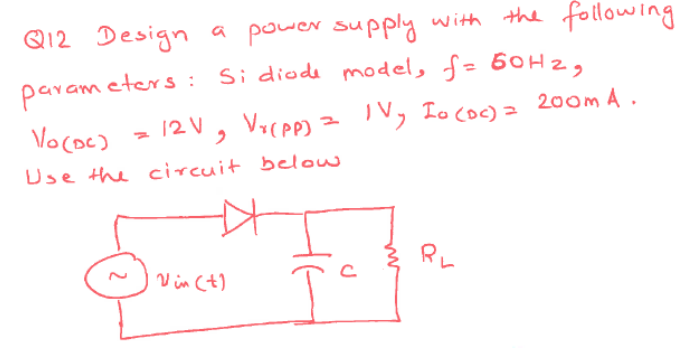 Q12 Design a power supply with the following
parameters : Si diode model, f = 60Hz,
Vo(DC) = 12V, Vr(PP) = 1V, Io(DC) = 200mA.
Use the circuit below
~ Vin(t) C RL